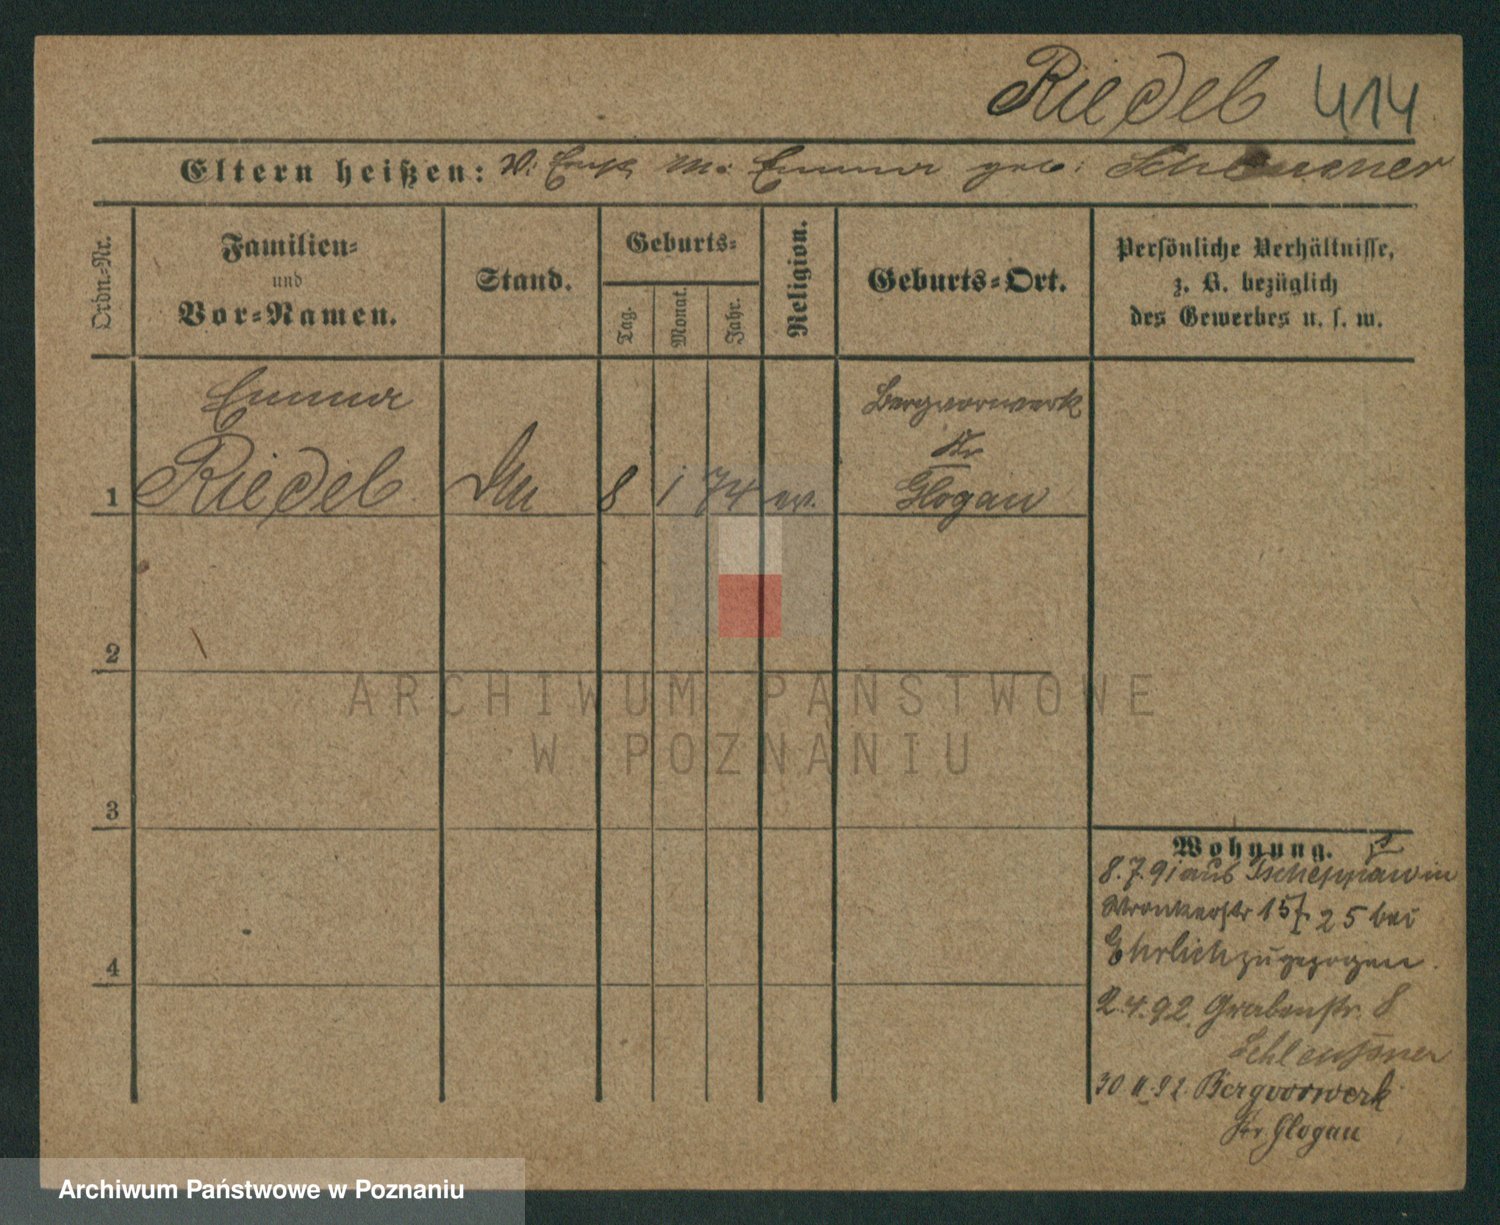 Riedel 414
Eltern heißen: V: M: Emma geb: Schleusner
Ordn.-Nr.
Familien-
und
Vor-Namen.
Stand.
Geburts-
Tag.
Monat.
Jahr.
Religion.
Geburts-Ort.
Persönliche Verhältnisse,
z. B. bezüglich
des Gewerbes u. s. w.
Emma
Riedel
1
8 1 74 ev.
Bergvorwerk
Kr
Glogau
2
3
4
Wohnung.
8.7.91 aus in
Wronkerstr 15 25 bei
Ehrlich zugezogen.
2.4.92. Grabenstr. 8
Schleusner
30 11.92. Bergvorwerk
Kr. Glogau
ARCHIWUM PAŃSTWOWE
W POZNANIU
Archiwum Państwowe w Poznaniu